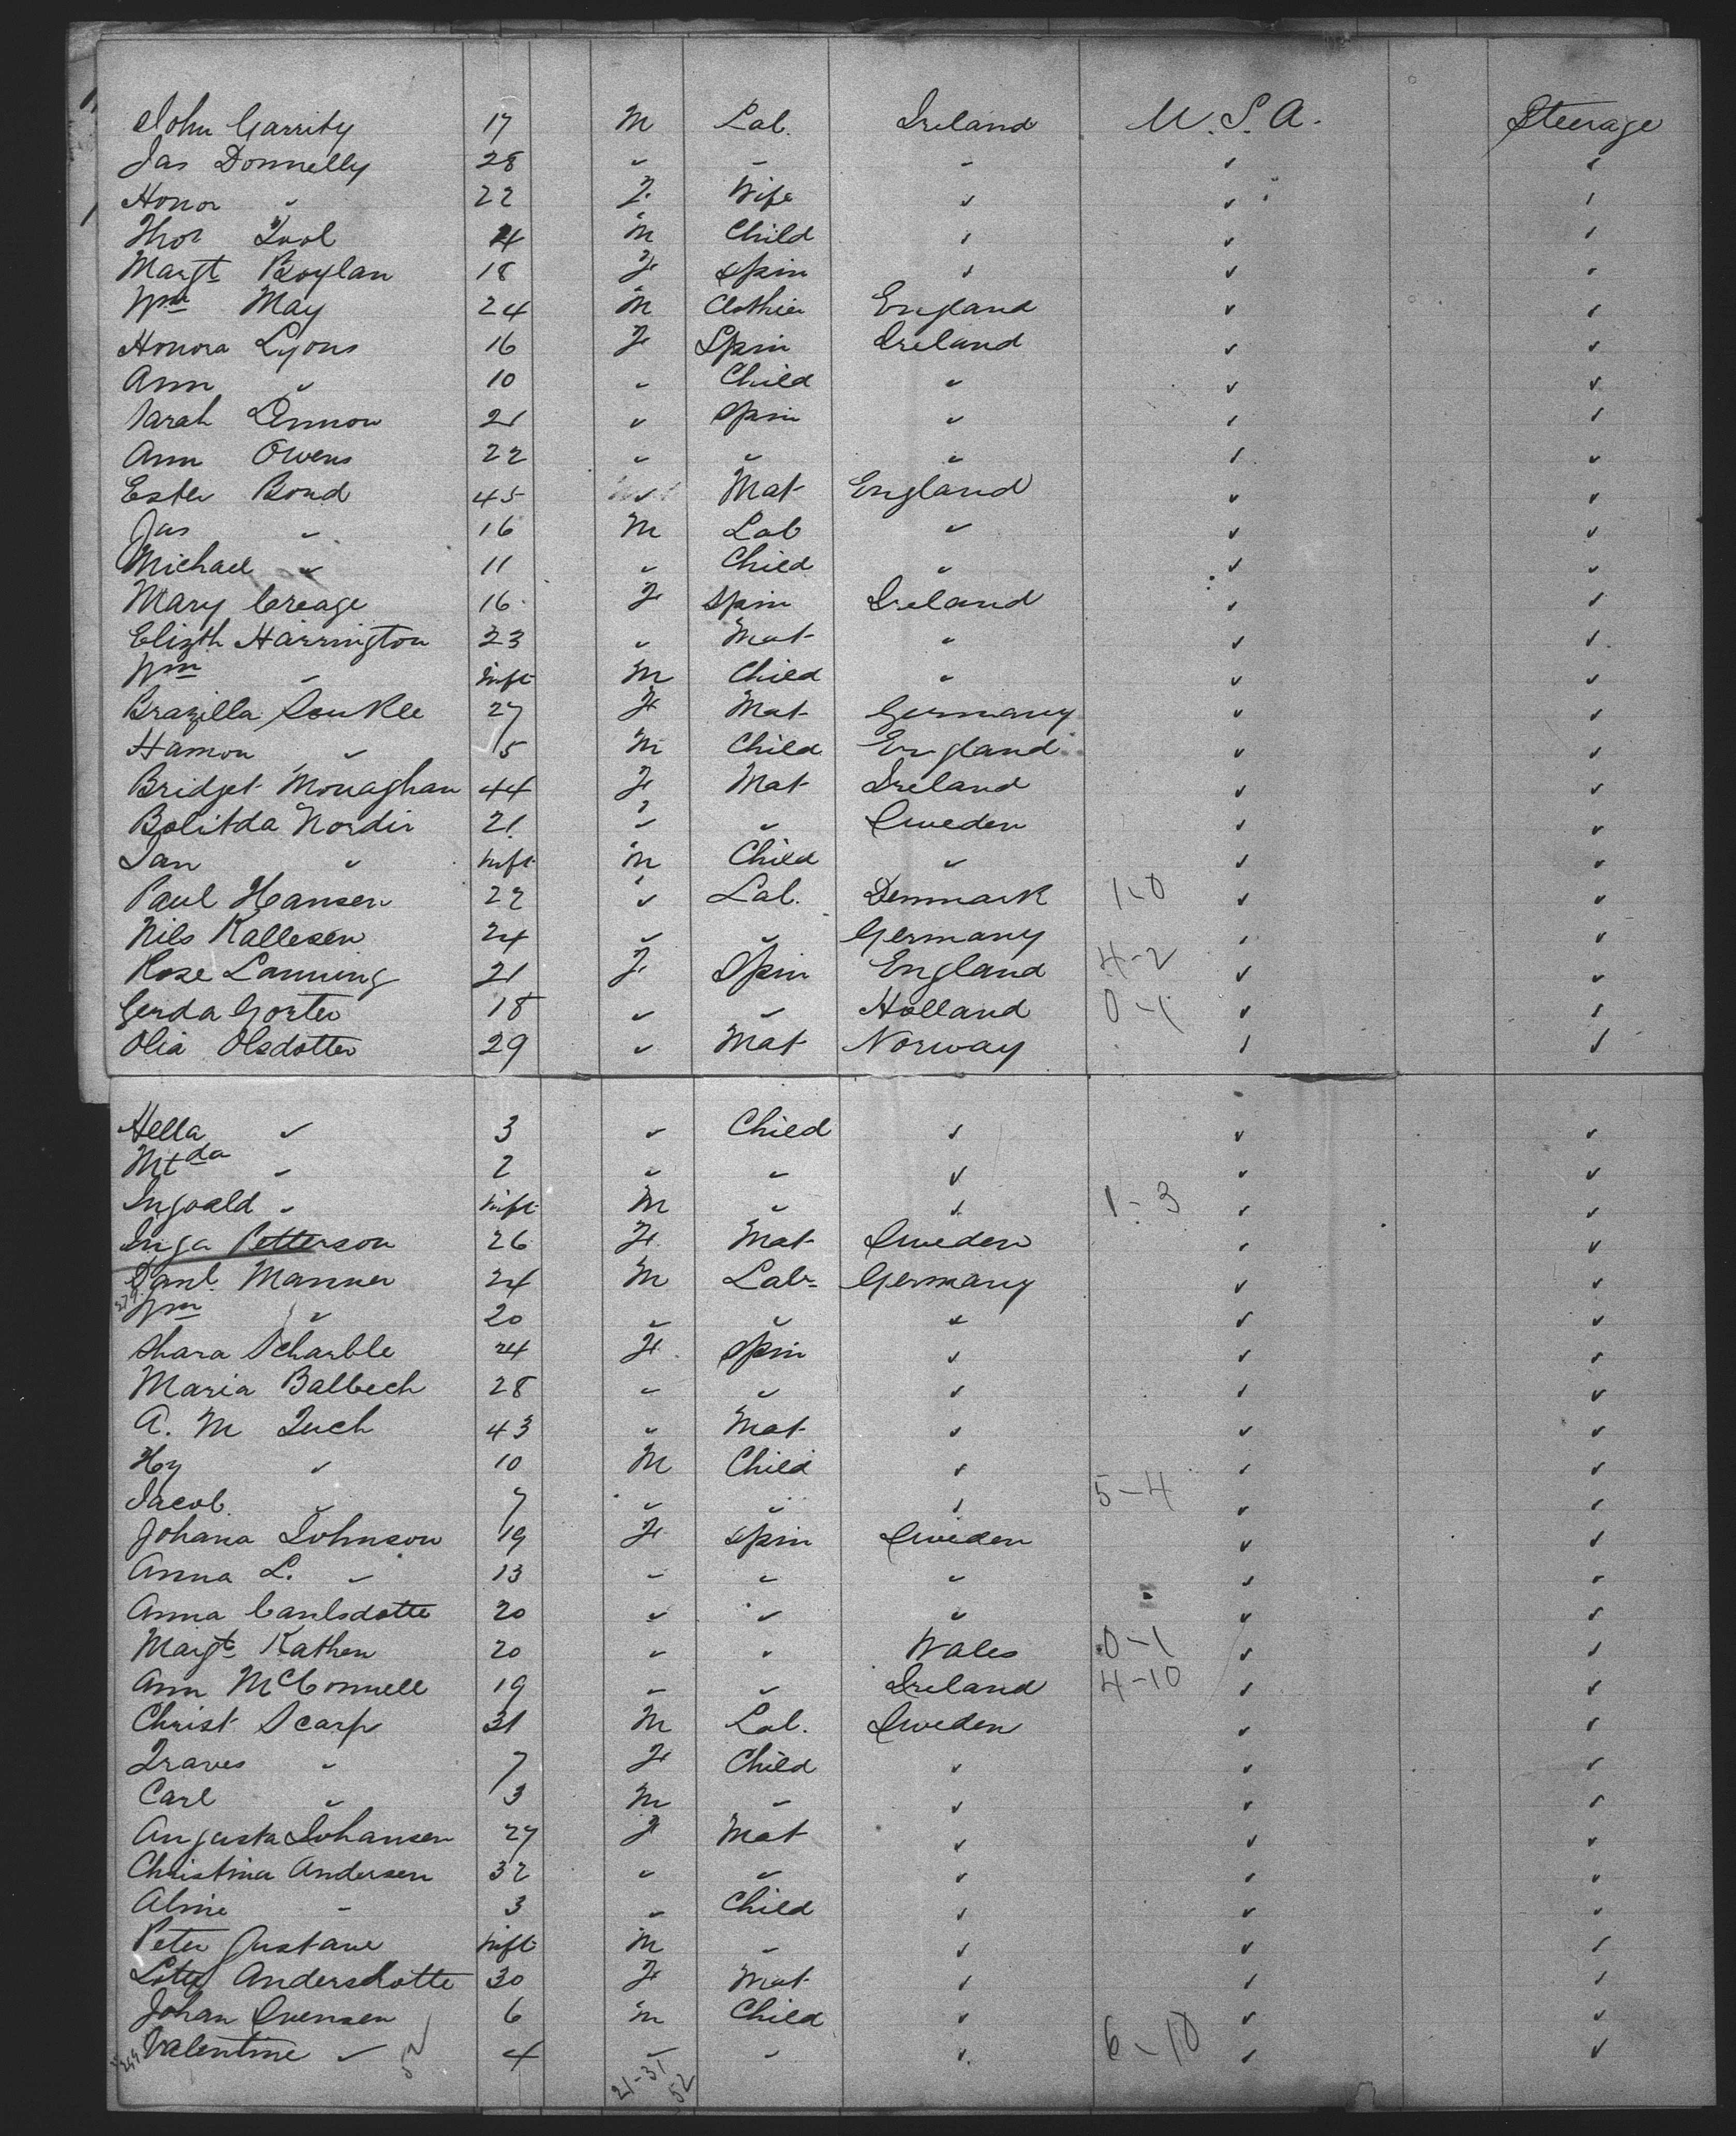 John Garrity 17 M Lab. Ireland U.S.A. Steerage
Jas Donnelly 28 " " " " "
Honor " 22 F Wife " " "
Thos 4 M Child " " "
Margt Boylan 18 F Spin " " "
Wm May 24 M Clothier England " "
Honora Lyons 16 F Spin Ireland " "
Ann " 10 " Child " " "
Sarah Lennon 21 " Spin " " "
Ann Owens 22 " " " " "
Ester Bond 45 " Mat England " "
Jas " 16 M Lab " " "
Michael " 11 " Child " " "
Mary Creage 16 F Spin Ireland " "
Elizth Harrington 23 " Mat " " "
Wm " Inft M Child " " "
Brazilla 27 F Mat Germany " "
Hamon " 5 M Child England " "
Bridget Monaghan 44 F Mat Ireland " "
Bolitda Nordin 21 " " Sweden " "
Jan " Inft M Child " " "
Paul Hansen 22 " Lab. Denmark 1-0 " "
Nils Kallesen 24 " " Germany " "
Rose Lanning 21 F Spin England 4-2 " "
Gerda Gorter 18 " " Holland 0-1 " "
Olia Olsdotter 29 " Mat Norway " "
Hella " 3 " Child " " "
Mtda " 2 " " " " "
Ingvald " Inft M " " 1-3 " "
Inga Petterson 26 F Mat Sweden " "
Danl. Manner 24 M Labr Germany " "
Wm " 20 " " " " "
Shara Scharble 24 F Spin " " "
Maria Balbech 28 " " " " "
A. M Tuch 43 " Mat " " "
Hy " 10 M Child " " "
Jacob " 7 " " " 5-4 " "
Johana Johnson 19 F Spin Sweden " "
Anna L. " 13 " " " " "
Anna Carlsdotte 20 " " " " "
Margt Kathen 20 " " Wales 0-1 " "
Ann McConnell 19 " " Ireland 4-10 " "
Christ Scarp 31 M Lab. Sweden " "
Traves " 7 F Child " " "
Carl " 3 M " " " "
Augusta Johansen 27 F Mat " " "
Christina Andersen 32 " " " " "
Aline " 3 " Child " " "
Peter Gustave Inft M " " " "
Lotty Andersdotte 30 F Mat " " "
Johan Svensen 6 M Child " " "
Valentine " 4 " " " 6-10 " "
52 21-31 52